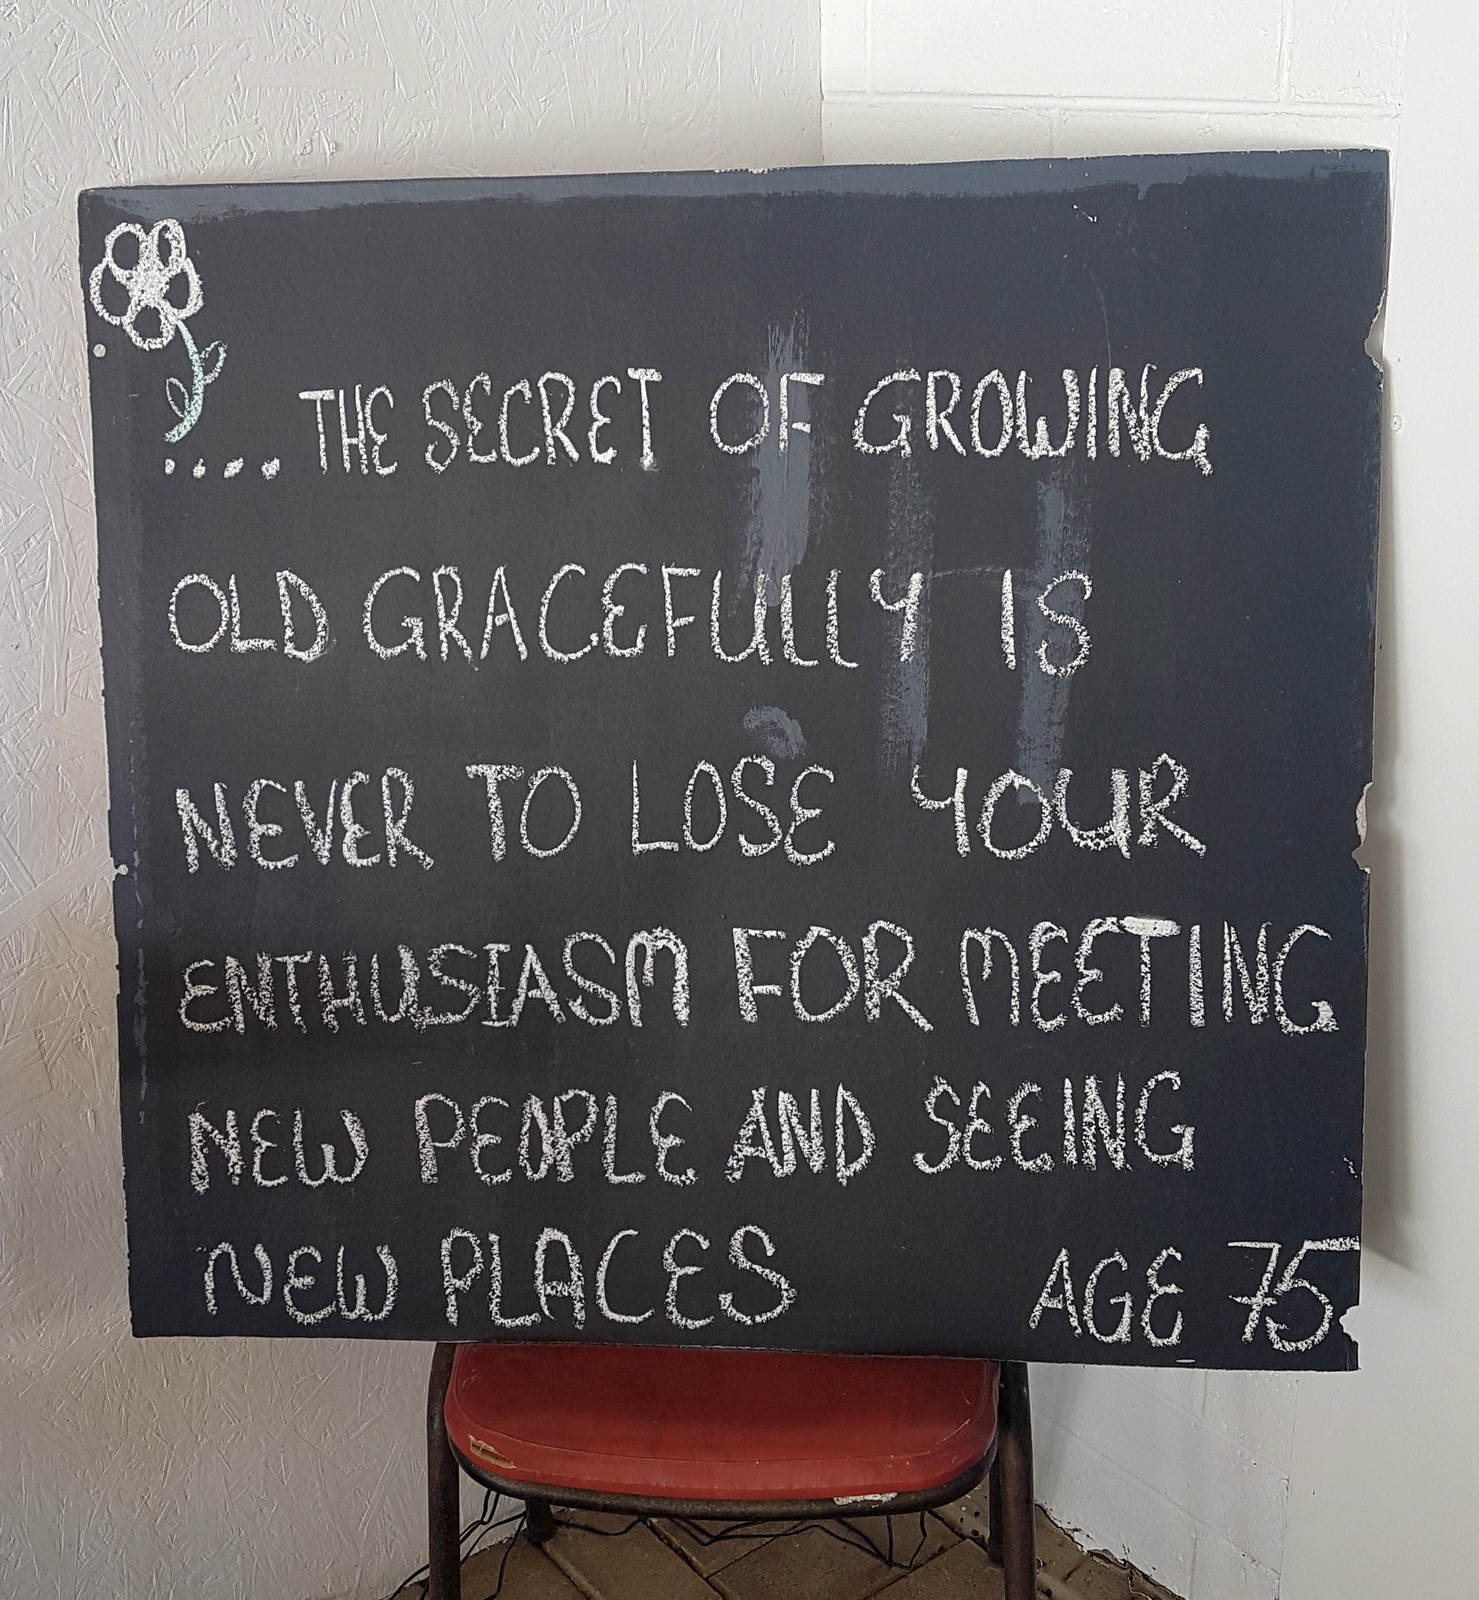 .... THE SECRET OF GROWING
OLD GRACEFULLY IS
NEVER TO LOSE YOUR
ENTHUSIASM FOR MEETING
NEW PEOPLE AND SEEING
NEW PLACES AGE 75